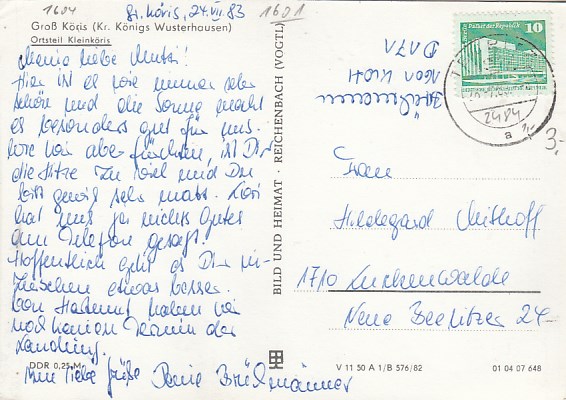 1604
Gr. Köris, 24.VII.83
1601
Groß Köris (Kr. Königs Wusterhausen)
Ortsteil Kleinköris
Meine liebe Mutti!
Hier ist es wie immer sehr
schön und die Sonne macht
es besonders gut für uns.
Wie wir aber fürchten, ist Dir
die Hitze zu viel und Du
bist gewiß sehr matt.
hat uns ja nichts Gutes
am Telefon gesagt.
Hoffentlich geht es Dir in-
zwischen etwas besser.
Von Hartmut haben wir
noch keinen Termin der
Landung.
Viele liebe Grüße Deine Brüsemänner
DDR 0,25 M
BILD UND HEIMAT · REICHENBACH (VOGTL)
V 11 50 A 1/B 576/82
01 04 07 648
Palast der Republik
10
2484
a
3,-
Frau
Hildegard Mithoff
1710 Luckenwalde
Neue Beelitzer 24